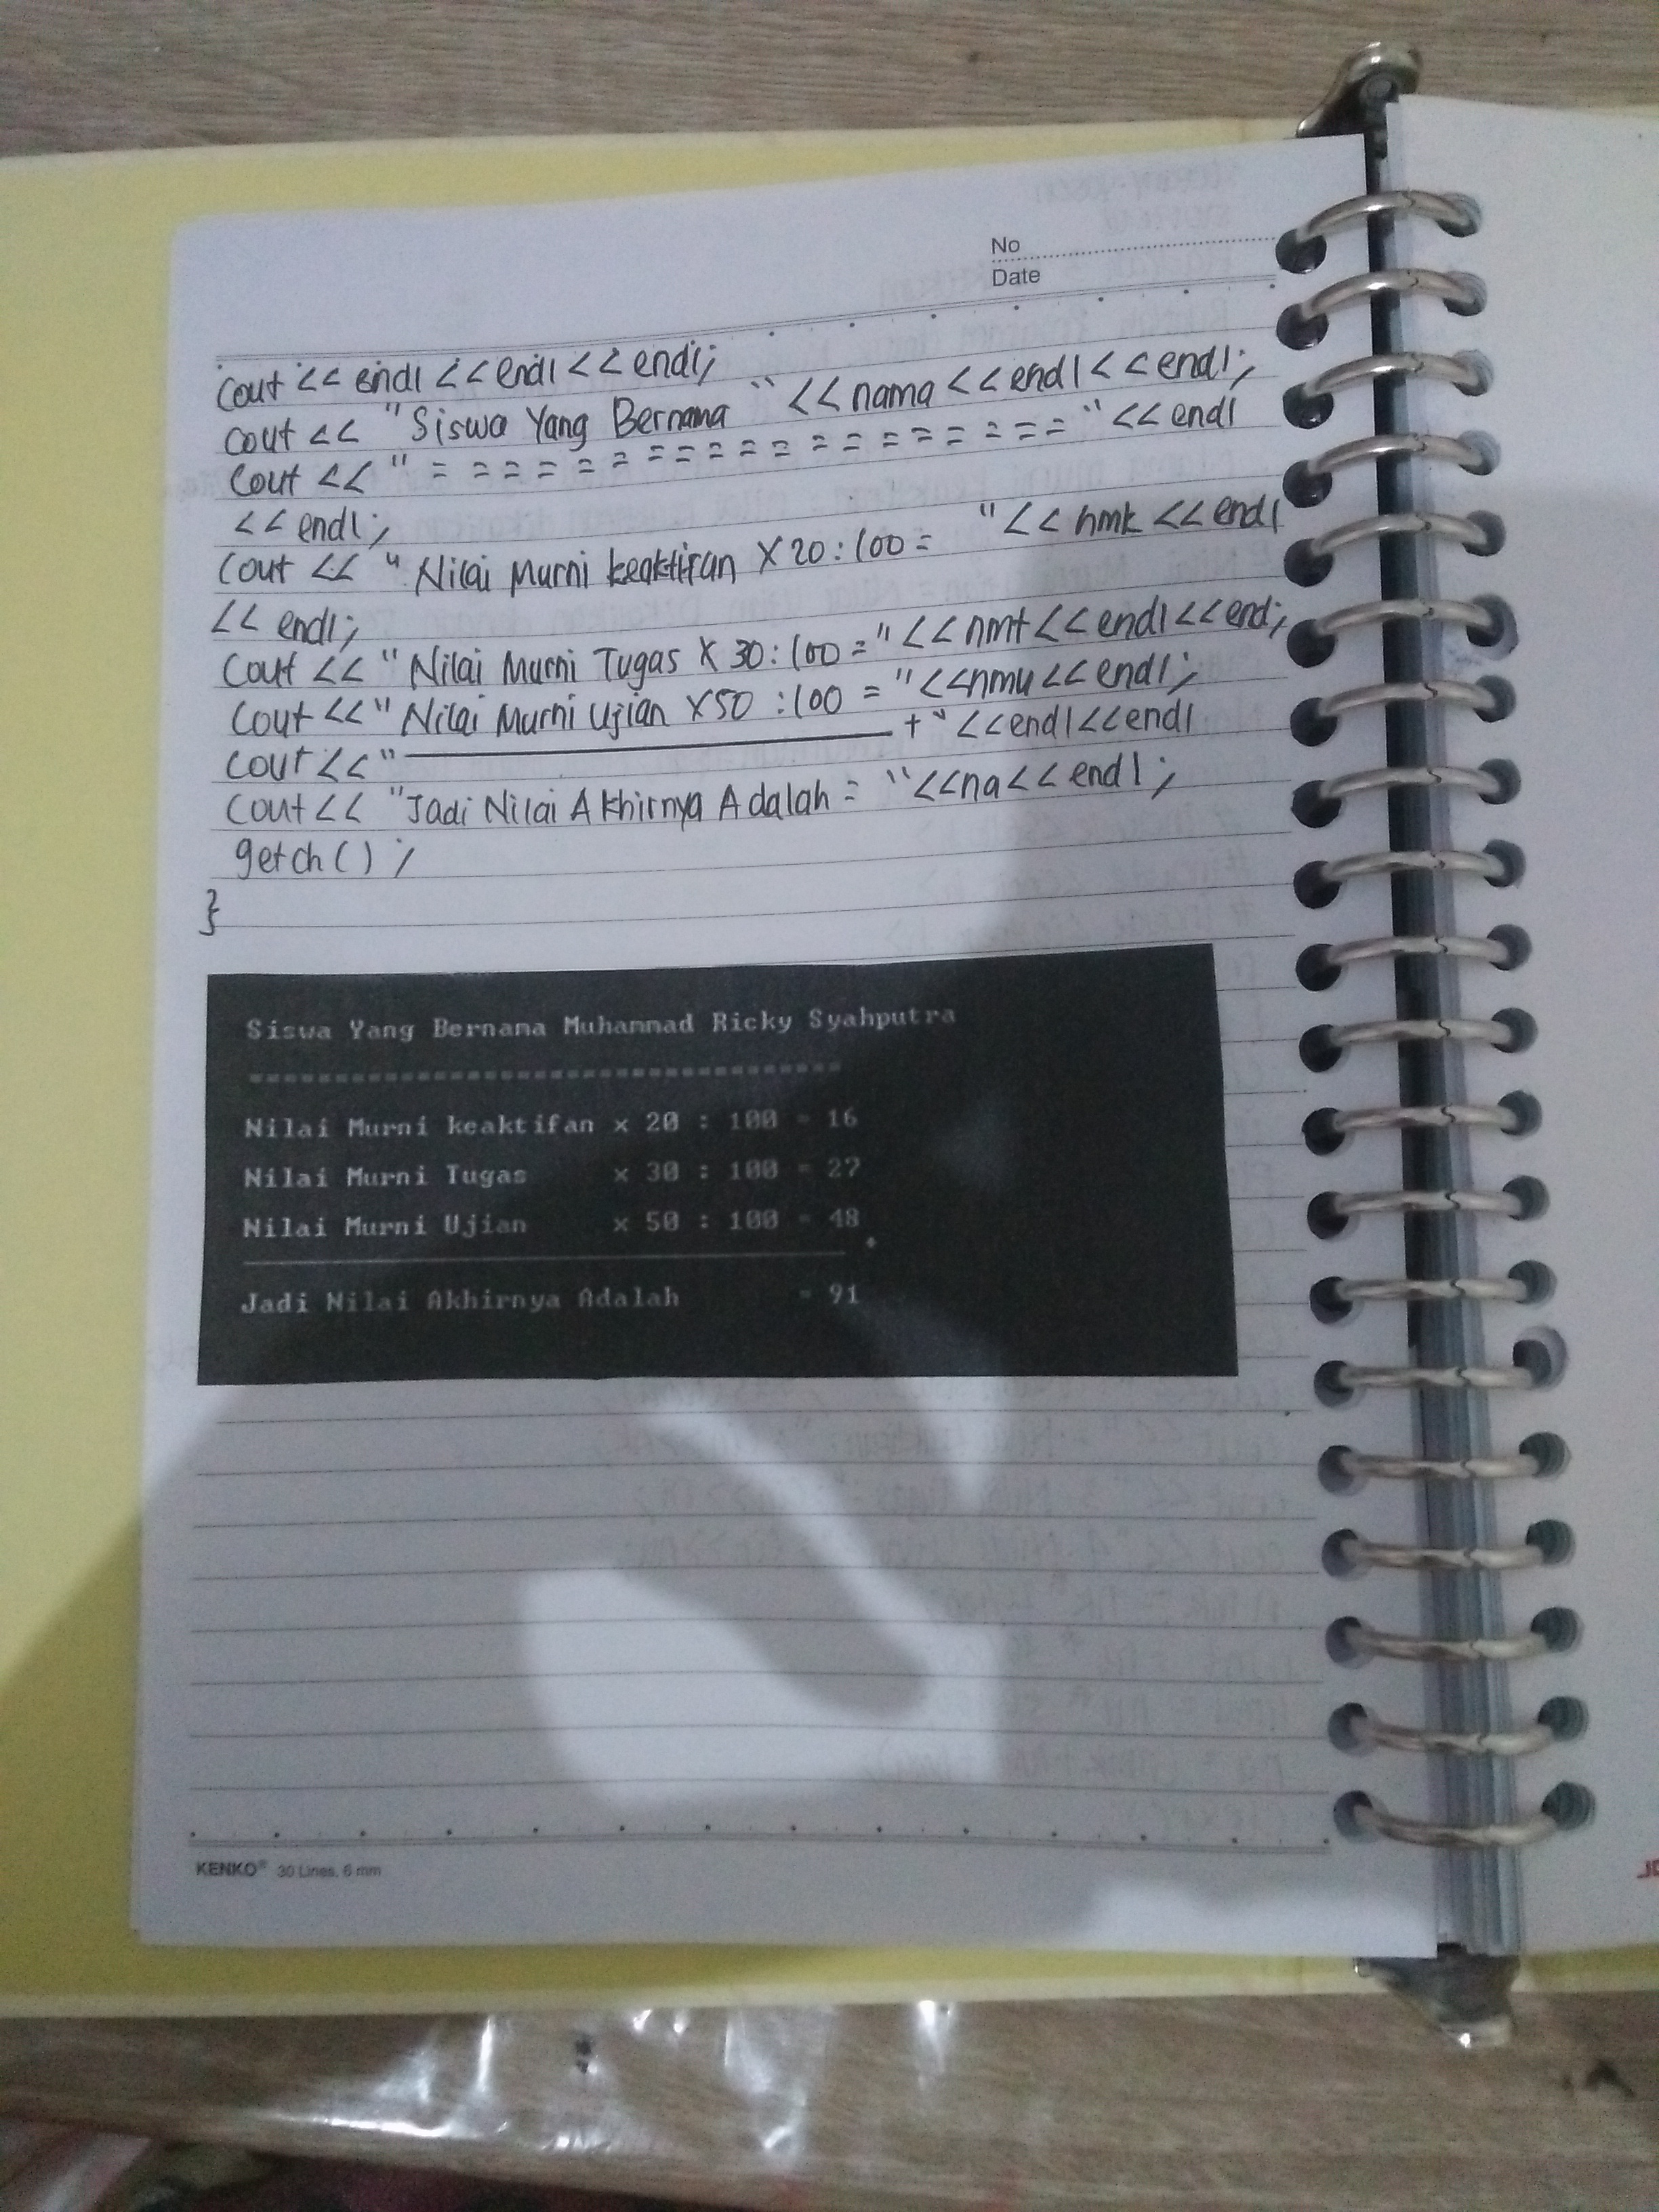 No
Date
cout << endl <<endl << endl;
cout << "Siswa Yang Bernama " <<nama <<endl <<endl;
Cout << " = = = = = = = = = = = = = = = = = = " <<endl
<<endl;
Cout << " Nilai Murni keaktifan X 20 : 100 = " << nmk <<endl
<< endl;
Cout << " Nilai Murni Tugas X 30 : 100 = " <<nmt <<endl <<end;
Cout <<" Nilai Murni Ujian X50 : 100 = " <<nmu <<endl;
Cout <<" ——————————— + " <<endl <<endl
Cout << "Jadi Nilai Akhirnya Adalah = " <<na << endl ;
getch() ;
}
Siswa Yang Bernama Muhammad Ricky Syahputra
===================================
Nilai Murni keaktifan x 20 : 100 = 16
Nilai Murni Tugas x 30 : 100 = 27
Nilai Murni Ujian x 50 : 100 = 48
+
Jadi Nilai Akhirnya Adalah = 91
KENKO® 30 Lines, 6 mm